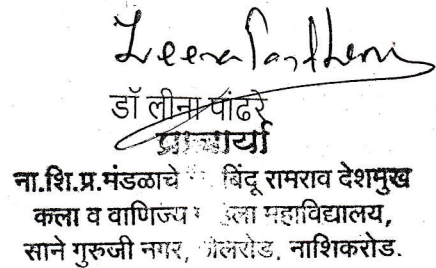 Leena Pandhare
डॉ लीना पांढरे
प्राचार्या
ना.शि.प्र.मंडळाचे बिंदू रामराव देशमुख
कला व वाणिज्य महिला महाविद्यालय,
साने गुरुजी नगर, जेलरोड, नाशिकरोड.